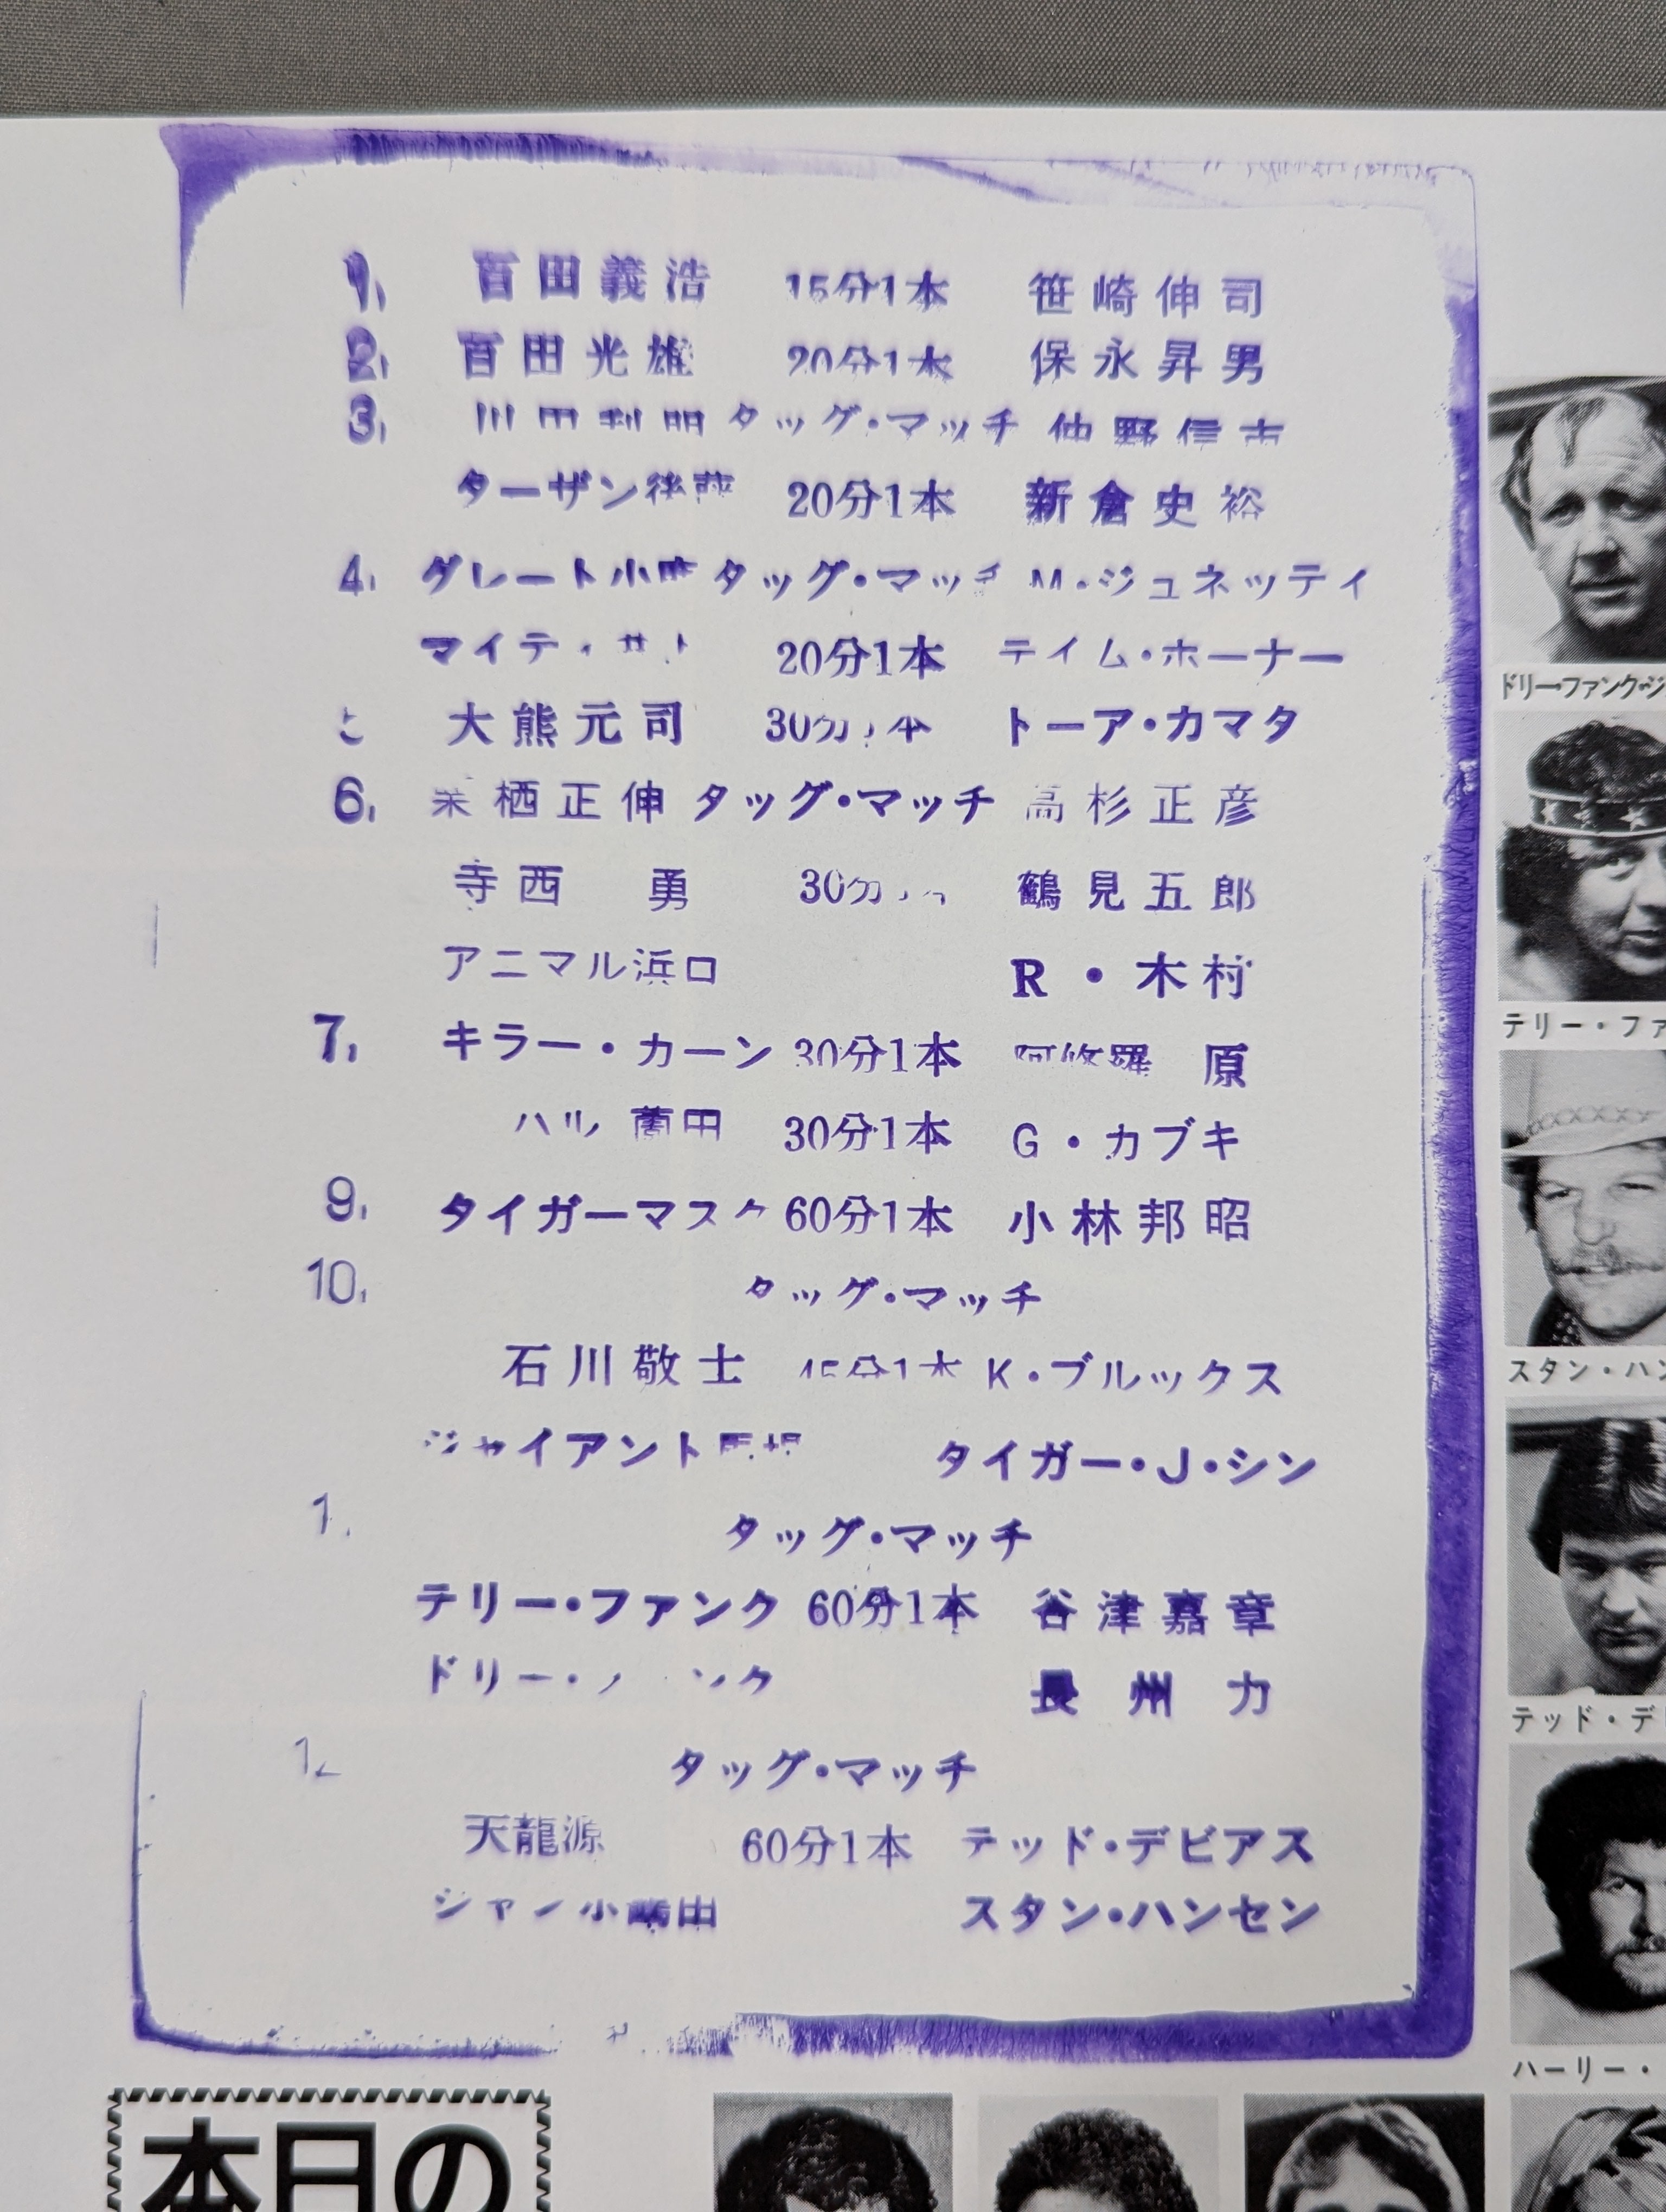 1, 百田義浩 15分1本 笹崎伸司
2, 百田光雄 20分1本 保永昇男
3, 川田利明 タッグ・マッチ 仲野信市
ターザン後藤 20分1本 新倉史裕
4, グレート小鹿 タッグ・マッチ M・ジュネッティ
マイティ・サト 20分1本 テイム・ホーナー
大熊元司 30分1本 トーア・カマタ
6, 栗栖正伸 タッグ・マッチ 高杉正彦
寺西 勇 30分 鶴見五郎
アニマル浜口 R・木村
7, キラー・カーン 30分1本 阿修羅 原
ハル 薗田 30分1本 G・カブキ
9, タイガーマスク 60分1本 小林邦昭
10, タッグ・マッチ
石川敬士 45分1本 K・ブルックス
ジャイアント馬場 タイガー・J・シン
タッグ・マッチ
テリー・ファンク 60分1本 谷津嘉章
ドリー・ファンク 長州力
タッグ・マッチ
天龍源 60分1本 テッド・デビアス
スタン・ハンセン
ドリー・ファンク・ジ
テリー・ファ
スタン・ハン
テッド・デ
ハーリー・
本日の